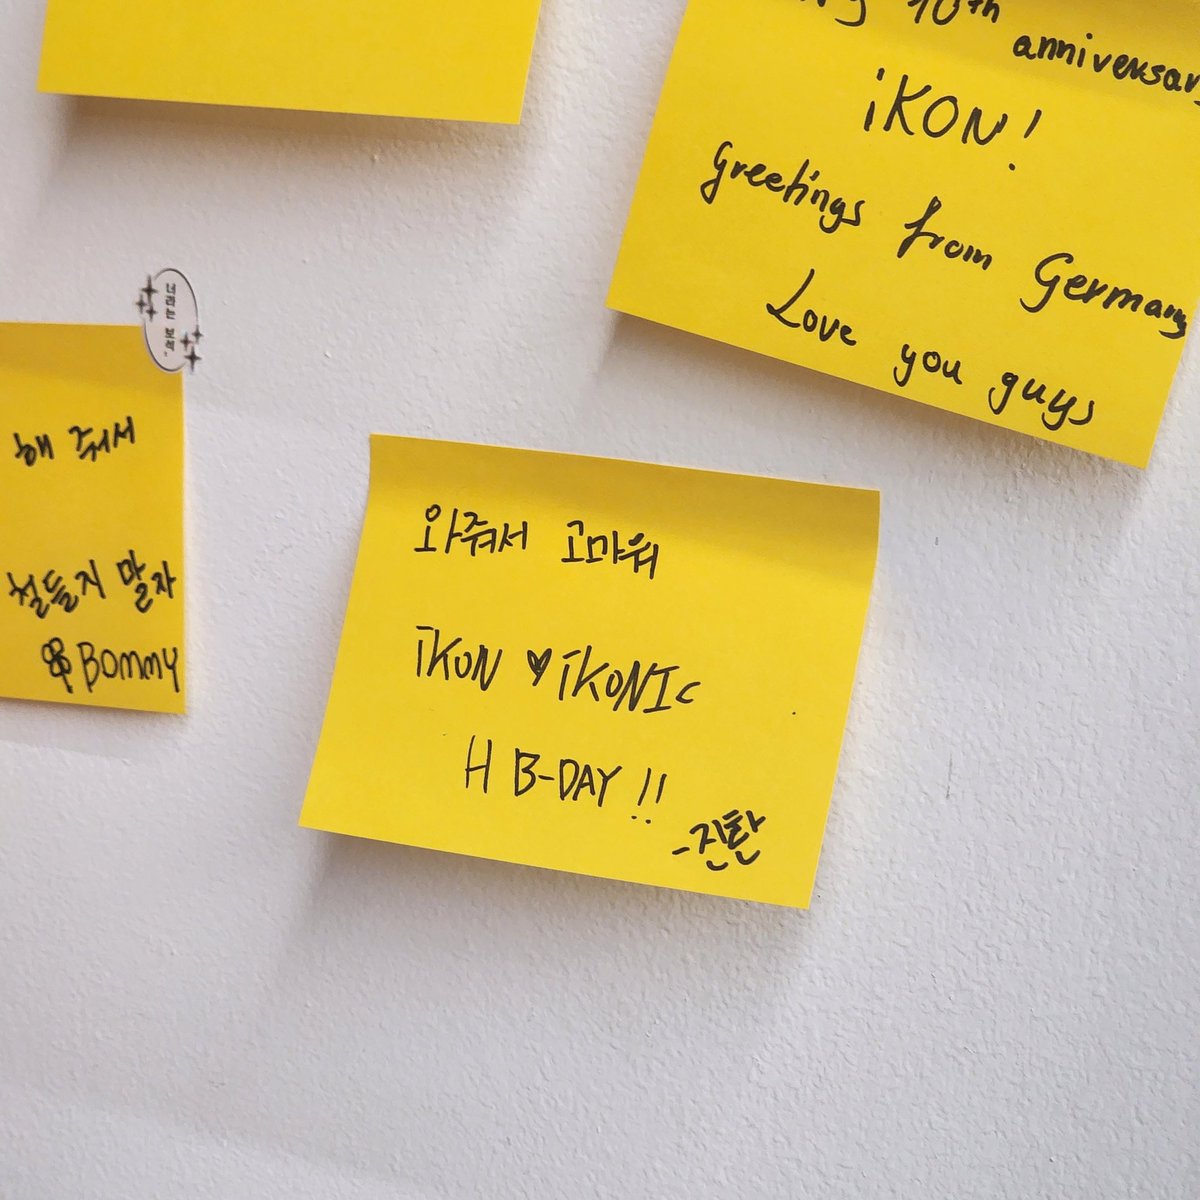 10th
anniversary
iKON!
Greetings from Germany
Love you guys
너라는 보석
해 줘서
철들지 말자
Bommy
와줘서 고마워
iKON ♥ iKONIC
H B-DAY !!
-진환